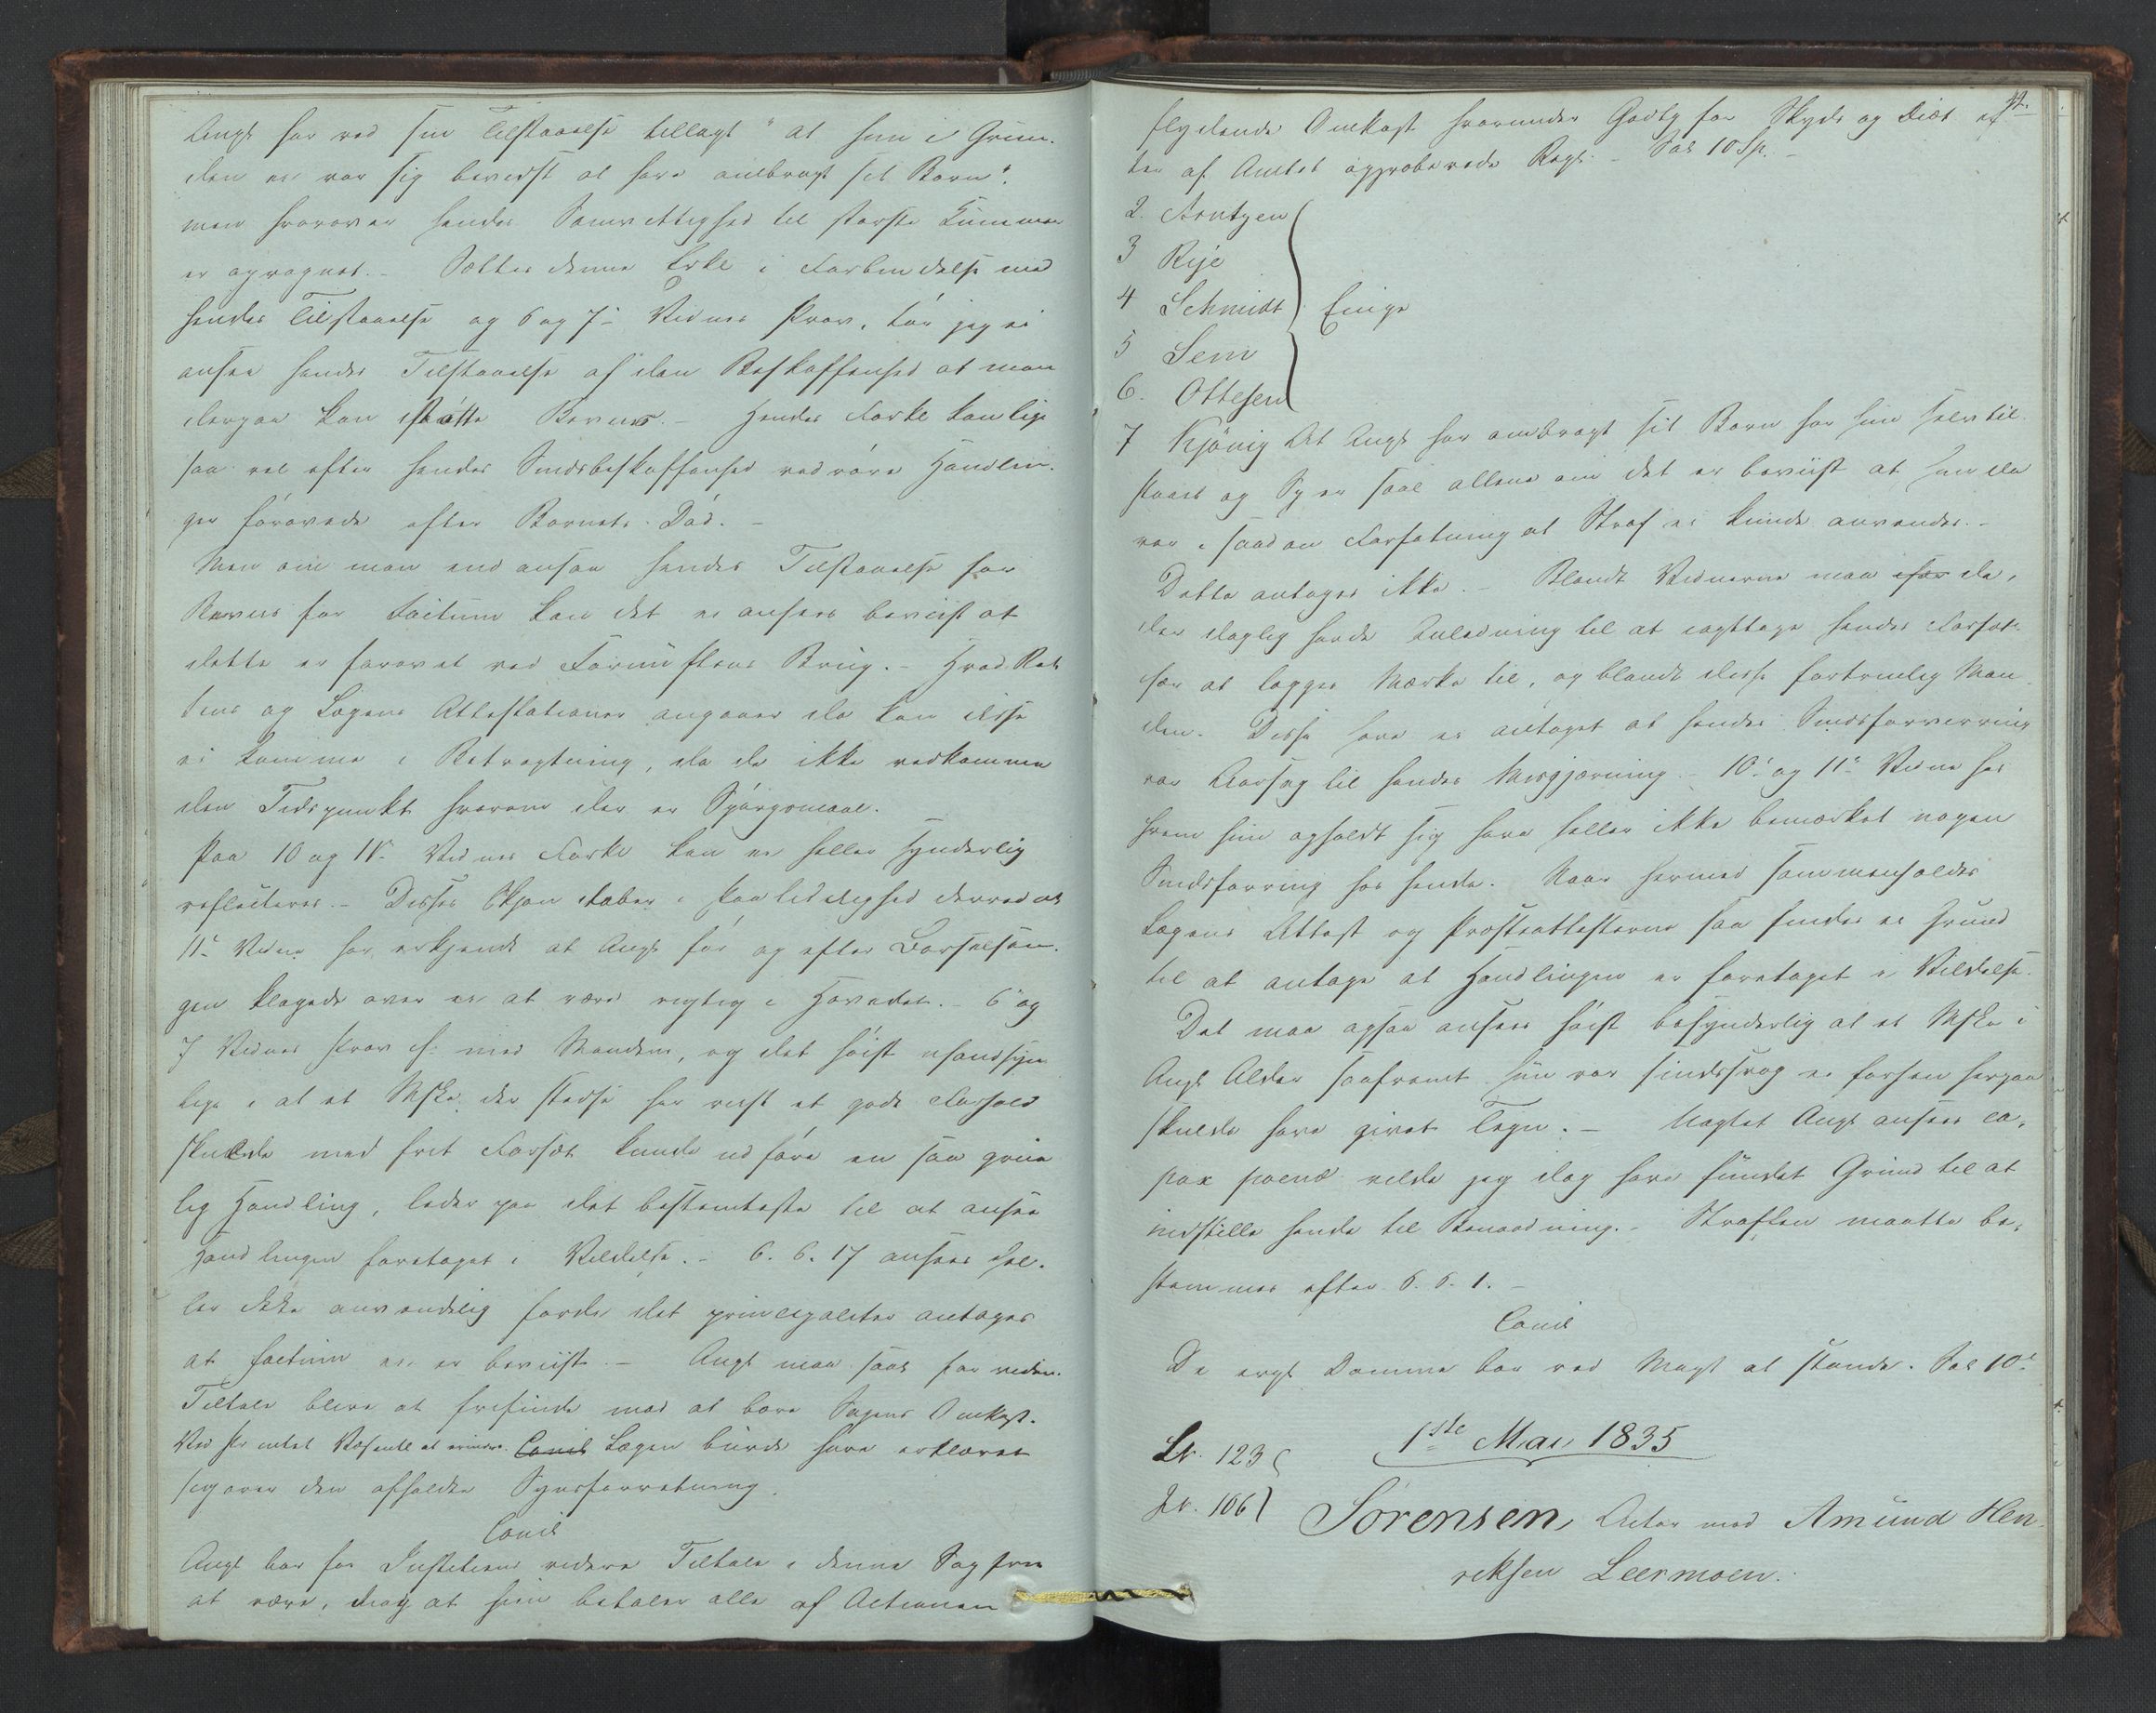 Angt har ved sin Tilstaaelse tillagt "at hun i Grun-
den ei var sig bevidst at have ombragt sit Barn",
men hvorover hendes Samvittighed til største Kummer
er opvagnet. - Sættes denne Erkl i Forbindelse med
hendes Tilstaaelse og 6 og 7de Vidnes Prov, tør jeg ei
ansee hendes Tilstaaelse af den Beskaffenhed at man
derpaa kan støtte Beviis. - Hendes Forkl kan lige
saa vel efter hendes Sindsbeskaffenhed vedrøre Handlin-
ger forøvede efter Barnets Død. -
Men om man end ansaa hendes Tilstaaelse for
Beviis for Factum kan det ei ansees beviist at
dette er forøvet ved Fornuftens Brug. - Hvad Ret
tens og Lægens Attestationer angaaer da kan disse
ei komme i Betragtning, da de ikke vedkomme
den Tidspunkt hvorom der er Spørgsmaal.
Paa 10 og 11te Vidnes Forkl kan ei heller synderlig
reflecteres. - Disses Skjøn taber i Paalidelighed derved at
11te Vidne har erkjendt at Angt før og efter Barselsen-
gen klagede over ei at være rigtig i Hovedet. - 6te og
7 Vidnes Prov  med Mandens, og det høist usandsyn
lige i at et Mske der stedse har viist et godt Forhold
skulde med frit Forsæt kunde udføre en saa grue
lig Handling, leder paa det bestemteste til at ansee
Handlingen foretaget i Vildelse. - 6. 6. 17 ansees hel-
ler ikke anvendelig fordi det principaliter antages
at factum ei er beviist. - Angt maa saal for vider
Tiltale blive at frifinde mod at bære Sagens Omkost.
Ved Præmtet Væsentl at erindre. Concl Lægen burde have erklæret
sig over den afholdte Synsforretning.
Concl
Angt bør for Justitiens videre Tiltale i denne Sag frie
at være, dog at hun betaler alle af Actionen
42.
flydende Omkost hvorunder Godtg for Skyds og Diæt ef
ter af Amtet approberede Regn. - Sal 10 Sp. -
2. Arntzen
3 Reje
4 Schmidt Enige
5 Sem
6. Ottesen
7 Kjönig At Angt har ombragt sit Barn har hun selv til
staaet og Sp er saal allene om det er beviist at hun da
var i saadan Forfatning at Straf ei kunde anvendes. -
Dette antages ikke. - Blandt Vidnerne maa især de,
der daglig havde Anledning til at iagttage hendes Forfat-
 at lægges Mærke til, og blandt disse fortrinlig Man
den. Disse have ei antaget at hendes Sindsforvirring
var Aarsag til hendes Misgjerning. 10de og 11te Vidne hos
hvem hun opholdt sig have heller ikke bemærket nogen
Sindsforvirring hos hende. Naar hermed sammenholdes
Lægens Attest og Præsteattesterne saa findes ei Grund
til at antage at Handlingen er foretaget i Vildelse.
Det maa ogsaa ansees høist besynderlig at et Mske i
Angt Alder saafremt hun var sindssvag ei forhen herpaa
skulde have givet Tegn. - Uagtet Angt ansees ca-
pax poenæ vilde jeg dog have fundet Grund til at
indstille hende til Benaadning. - Straffen maatte be-
stemmes efter 6. 6. 1. -
Concl
De ergt Domme bør ved Magt at stande. Sal 10 Sp
1ste Mai 1835
Lr. 123
Jv. 106
Sörensen, Actor mod Amund Hen-
reksen Leermoen.